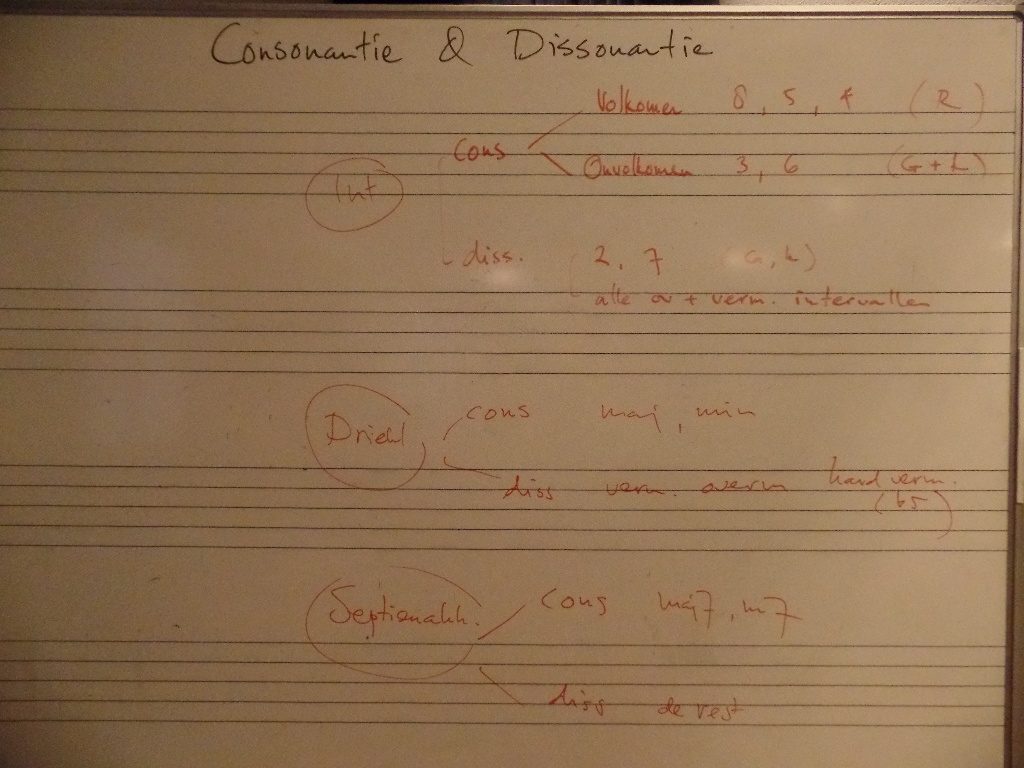 Consonantie & Dissonantie
Volkomen 8, 5, 4 (R)
cons
Onvolkomen 3, 6 (G+L)
Int
diss. 2, 7 (G, k)
alle ov + verm. intervallen
cons maj, min
Driekl
diss verm. overm hard verm.
(b5)
cons maj7, m7
Septiemakk.
diss de rest